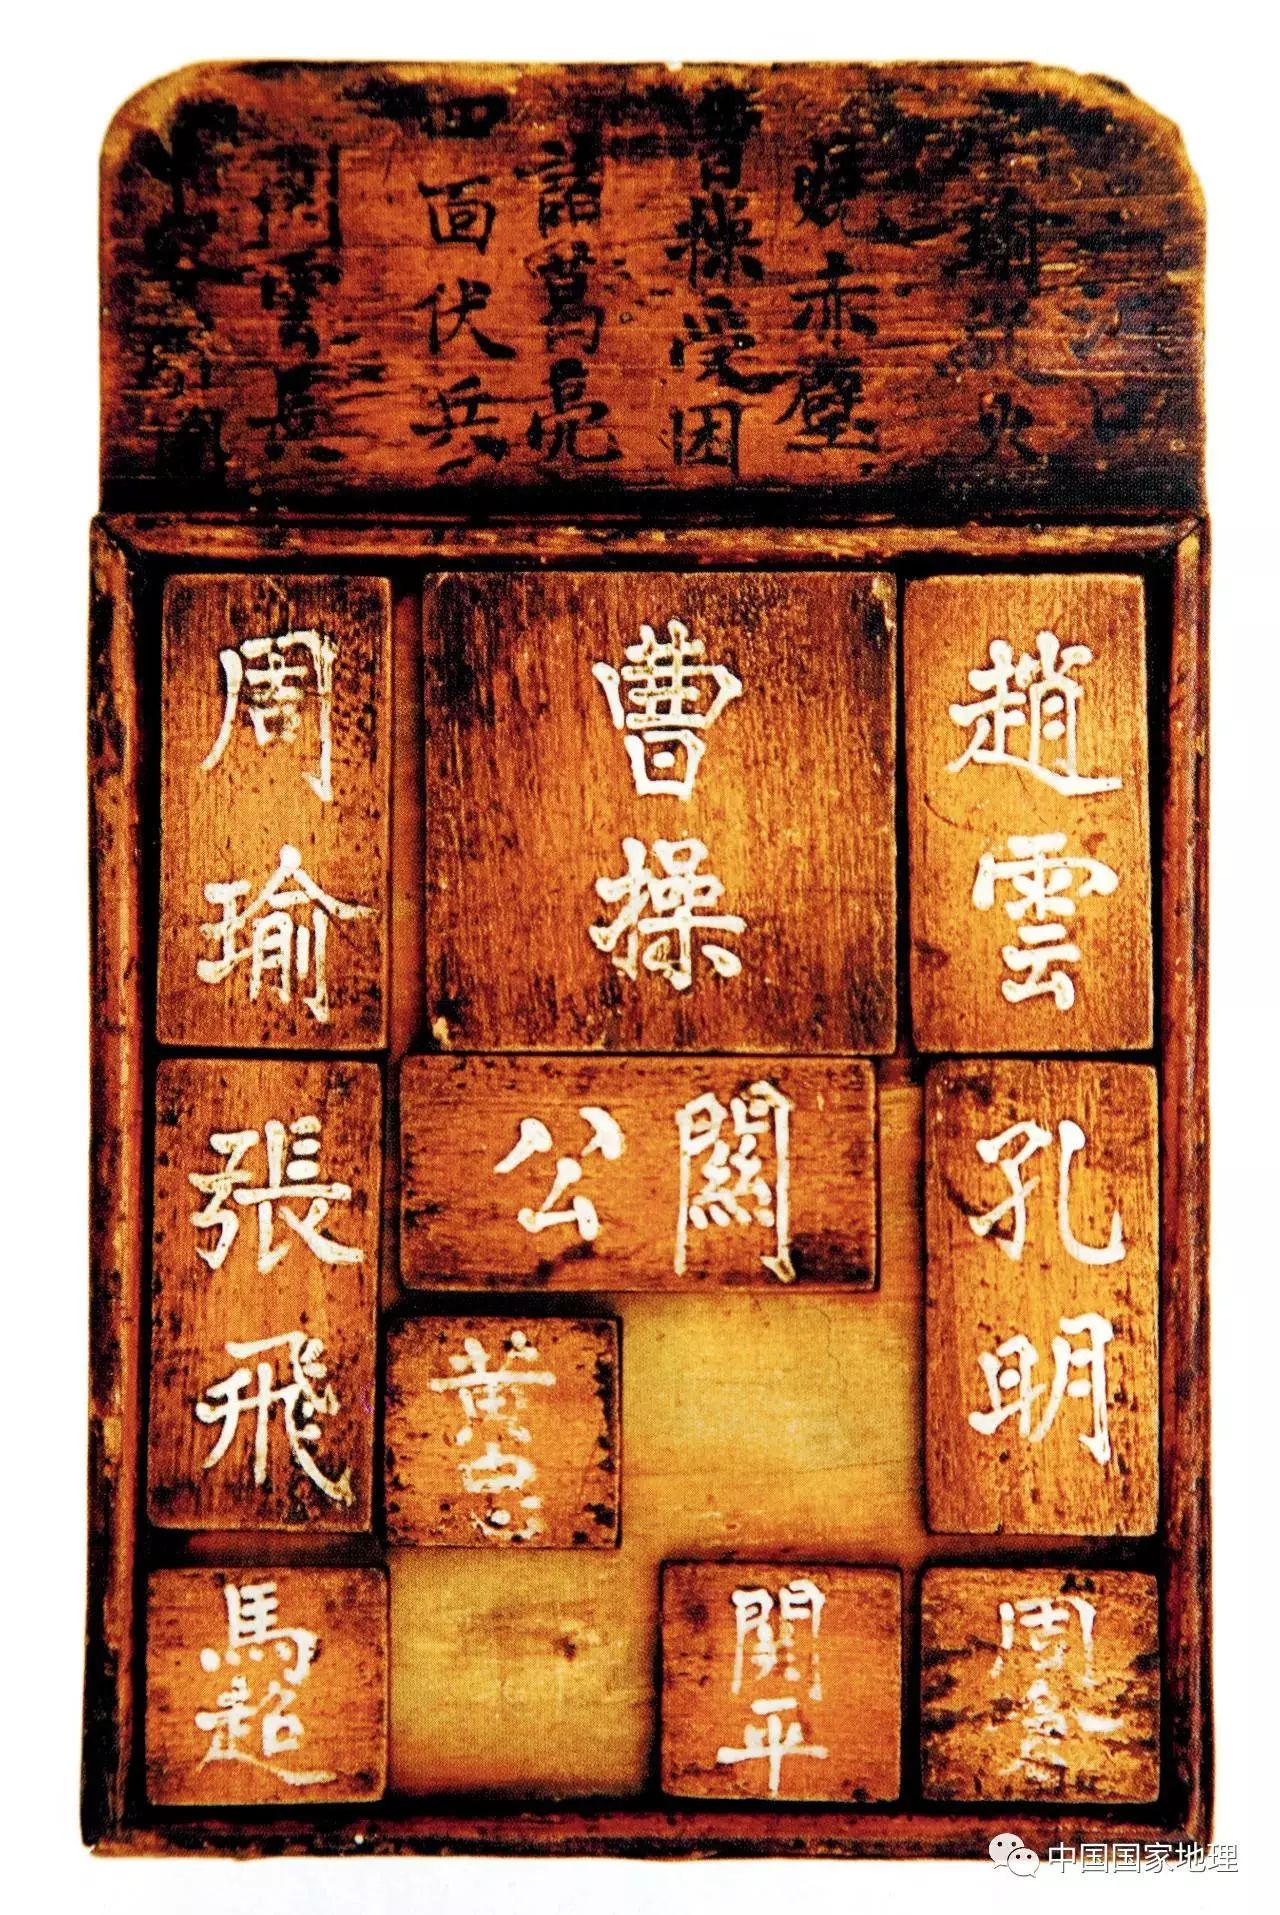 江口
瑜火
燒赤壁
曹操受困
諸葛亮
四面伏兵
關雲長
趙雲
曹操
周瑜
孔明
關公
張飛
黃忠
周倉
関平
馬超
中国国家地理